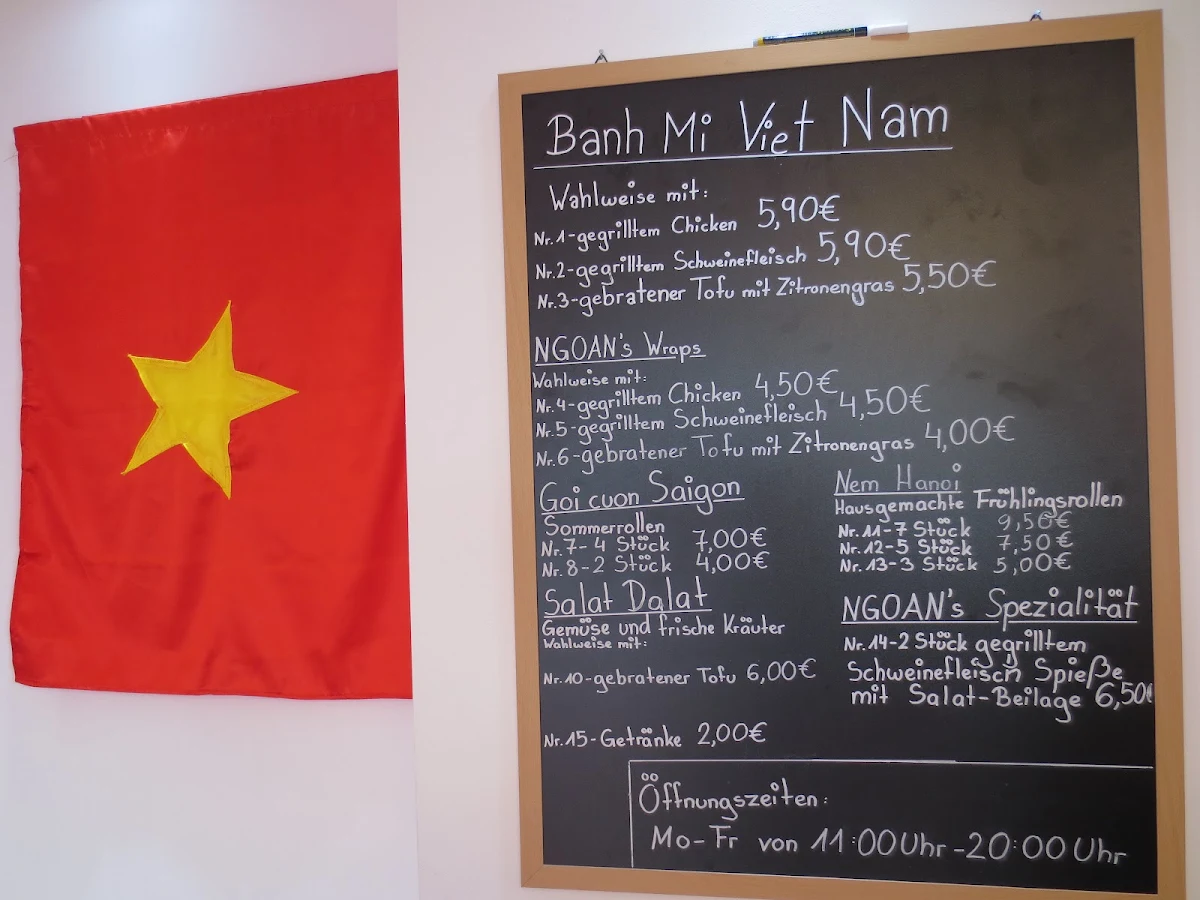 Banh Mi Viet Nam
Wahlweise mit:
Nr.1-gegrilltem Chicken 5,90€
Nr.2-gegrilltem Schweinefleisch 5,90€
Nr.3-gebratener Tofu mit Zitronengras 5,50€
NGOAN's Wraps
Wahlweise mit:
Nr.4-gegrilltem Chicken 4,50€
Nr.5-gegrilltem Schweinefleisch 4,50€
Nr.6-gebratener Tofu mit Zitronengras 4,00€
Goi cuon Saigon
Sommerrollen
Nr.7-4 Stück 7,00€
Nr.8-2 Stück 4,00€
Salat Dalat
Gemüse und frische Kräuter
Wahlweise mit:
Nr.10-gebratener Tofu 6,00€
Nr.15-Getränke 2,00€
Nem Hanoi
Hausgemachte Frühlingsrollen
Nr.11-7 Stück 9,50€
Nr.12-5 Stück 7,50€
Nr.13-3 Stück 5,00€
NGOAN's Spezialität
Nr.14-2 Stück gegrilltem
Schweinefleisch Spieße
mit Salat-Beilage 6,50€
Öffnungszeiten:
Mo-Fr von 11:00Uhr-20:00Uhr